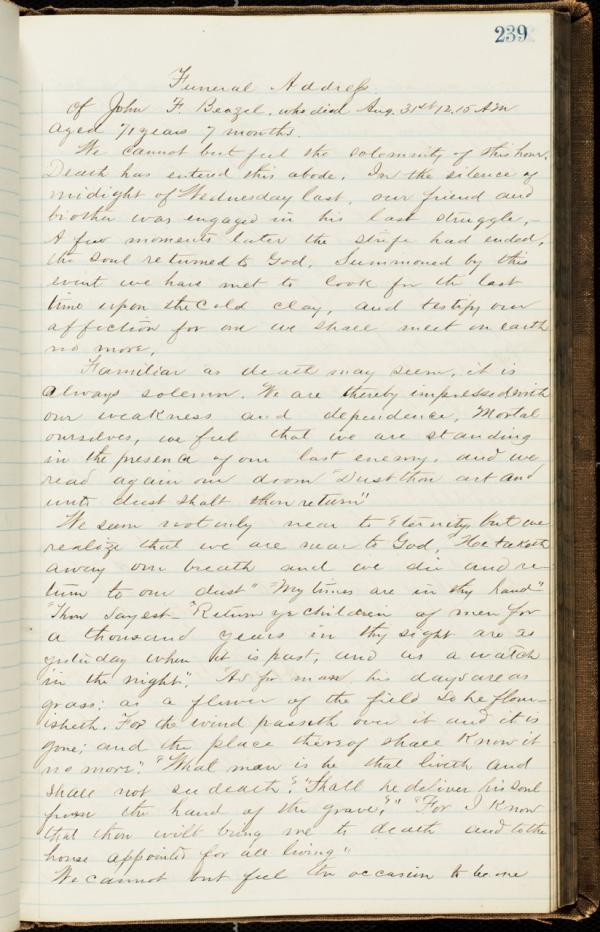 239
Funeral Address.
Of John F. Beazel, who died Aug. 31st 12.15 AM
aged 71 years 7 months.
We cannot but feel the solemnity of this hour.
Death has entered this abode. In the silence of
midight of Wednesday last, our friend and
brother was engaged in his last struggle,-
A few moments later the strife had ended,
the soul returned to God. Summoned by this
event we have met to look for the last
time upon the cold clay, and testify our
affection for one we shall meet on earth
no more.
Familiar as death may seem, it is
always solemn. We are thereby impressed with
our weakness and dependence. Mortal
ourselves, we feel that we are standing
in the presence of our last enemy. and we
read again our doom "Dust thou art and
unto dust shalt thou return"
We seem not only near to Eternity, but we
realize that we are near to God, "He taketh
away our breath and we die and re-
turn to our dust" "My times are in thy hand"
"Thou sayest- "Return ye children of men for
a thousand years in thy sight are as
yesterday when it is past, and as a watch
in the night". "As for man his days are as
grass; as a flower of the field so he flour-
isheth. For the wind passeth over it and it is
gone; and the place thereof shall know it
no more". "What man is he that liveth and
shall not see death?" "Shall he deliver his soul
from the hand of the grave?" "For I know
that thou wilt bring me to death and to the
house appointed for all living"
We cannot but feel the occasion to be one